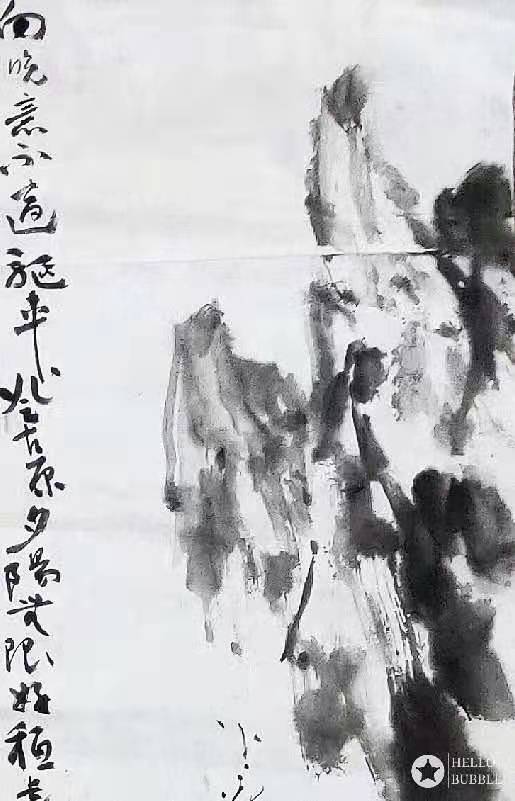 向晚意不適驅車登古原夕陽無限好秪
HELLO
BUBBLE